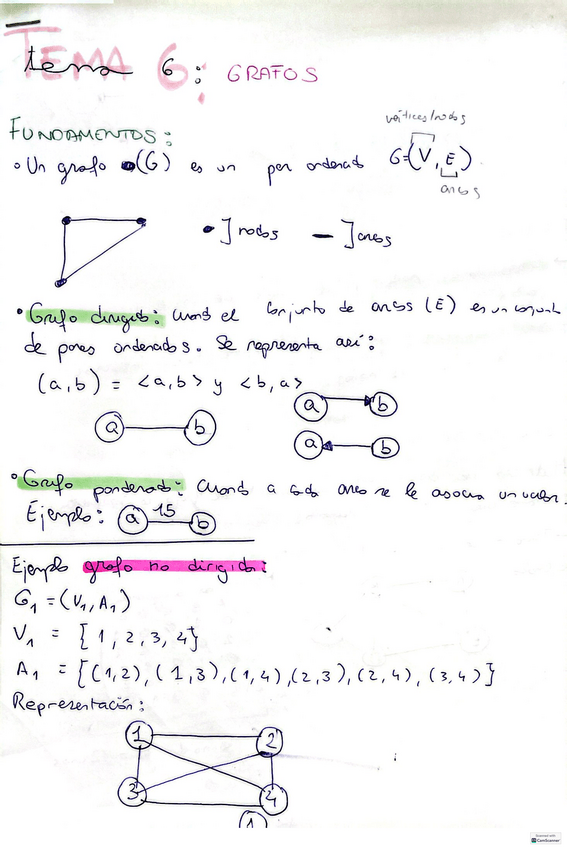 TEMA 6: GRAFOS
FUNDAMENTOS:
vértices/nodos
Un grafo (G) es un par ordenado G=(V, E)
arcos
nodos
arcos
Grafo dirigido: cuando el conjunto de arcos (E) es un conjunto
de pares ordenados. Se representa así:
(a,b) = <a,b> y <b,a>
a b
a b
a b
Grafo ponderado: cuando a cada arco se le asocia un valor.
Ejemplo: a 15 b
Ejemplo grafo no dirigido:
G₁ = (V₁, A₁)
V₁ = {1, 2, 3, 4}
A₁ = {(1,2), (1,3), (1,4), (2,3), (2,4), (3,4)}
Representación:
1 2
3 4
1
Scanned with
CamScanner